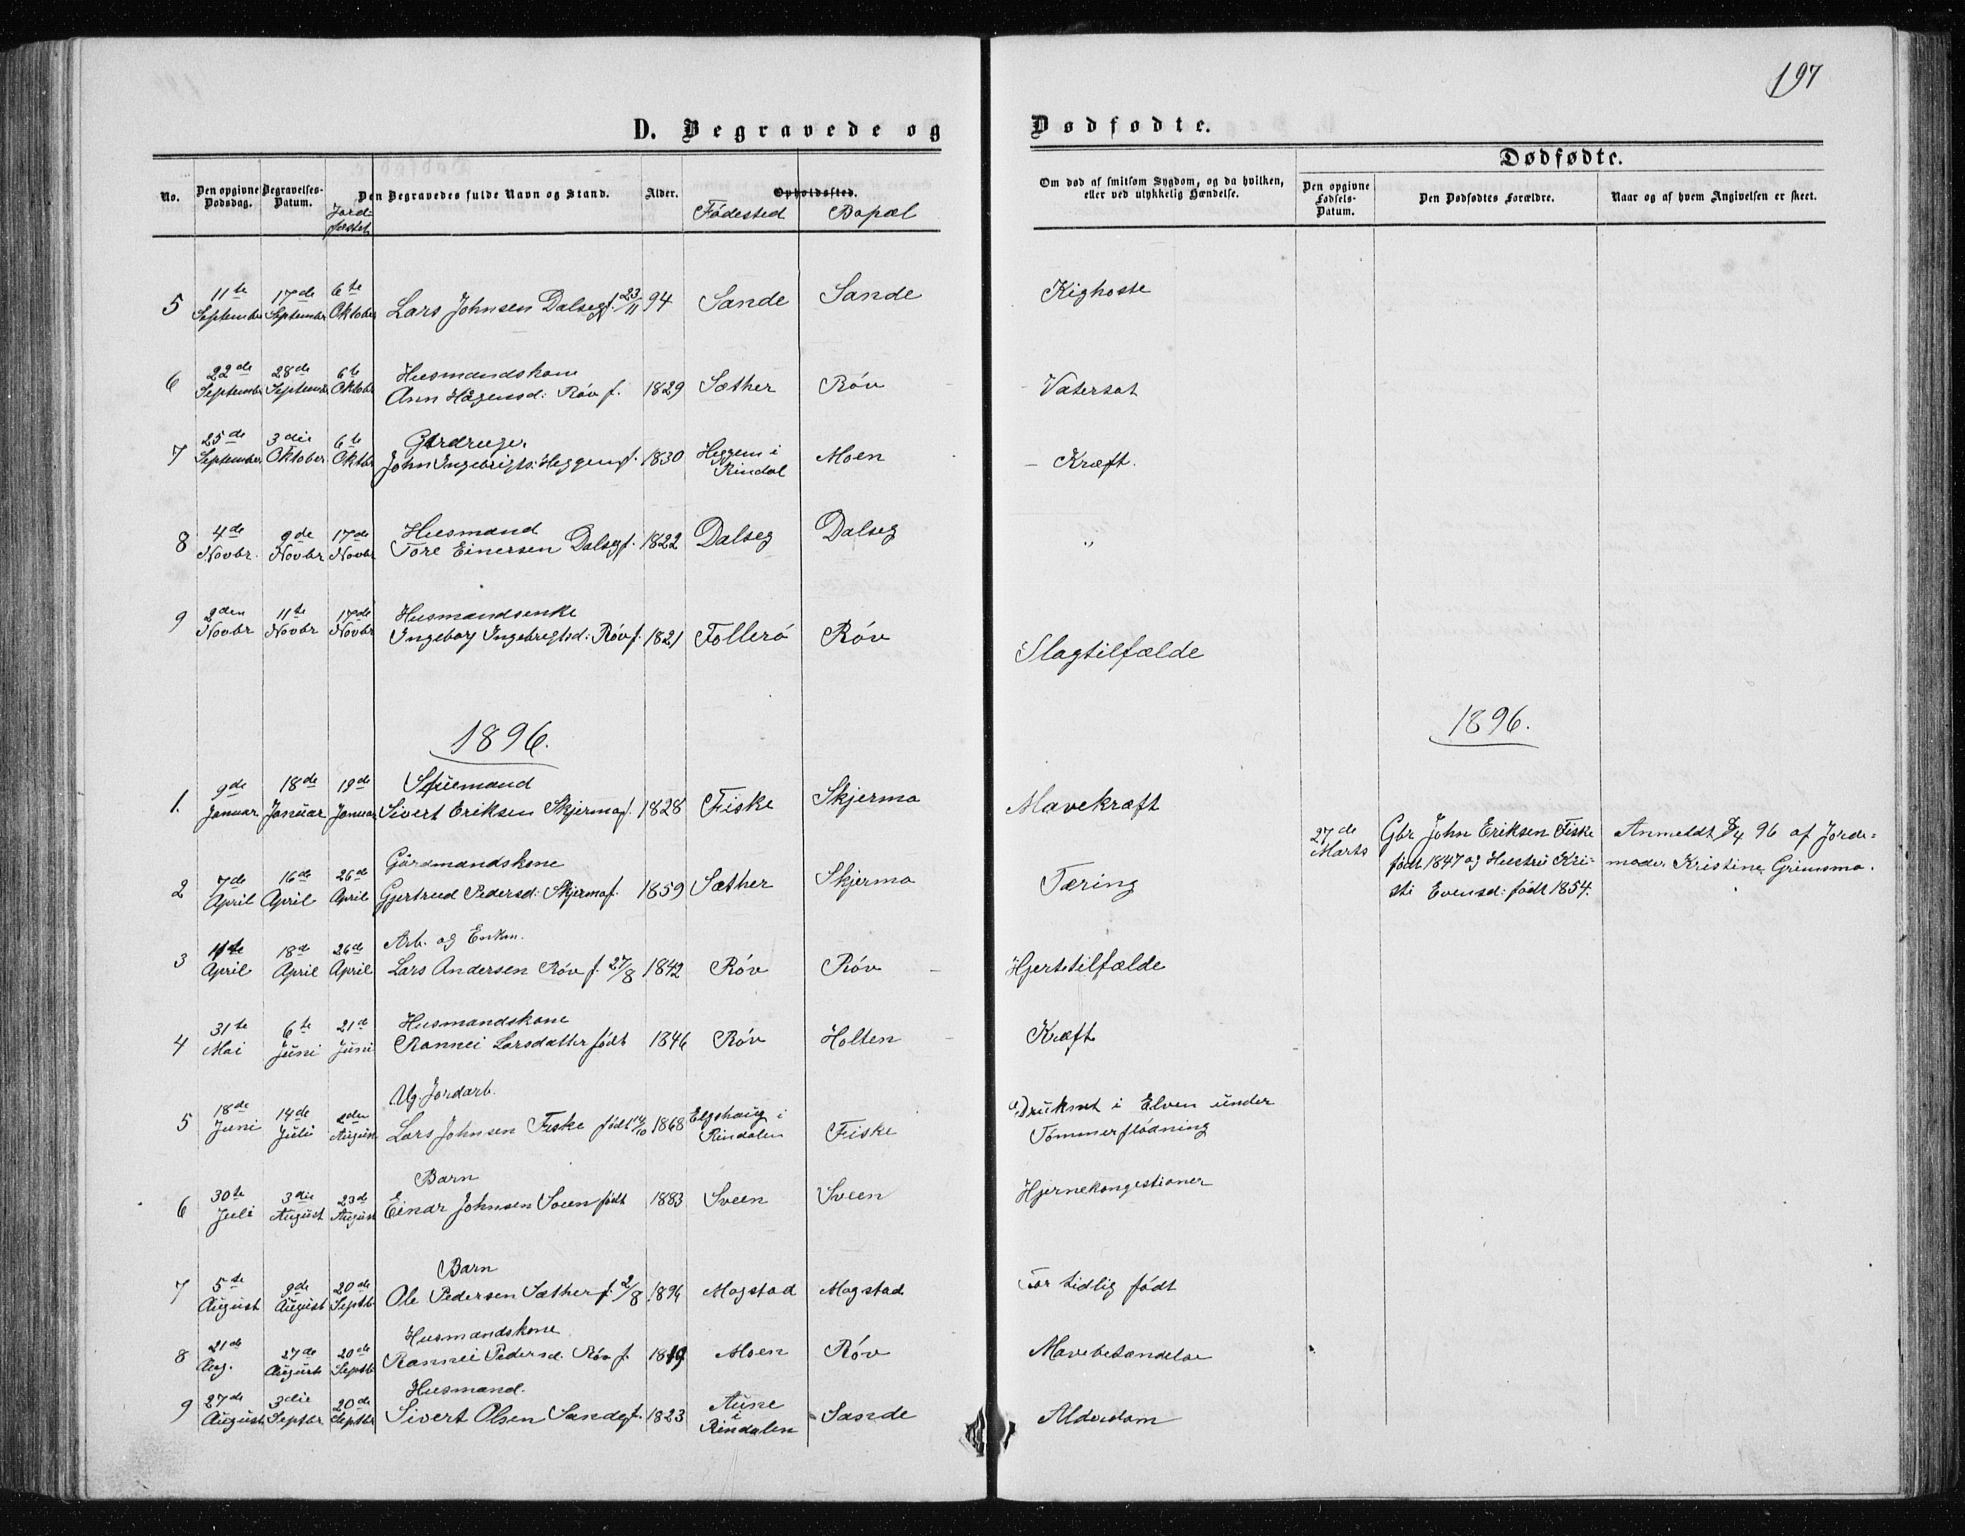 197
D. Begravede og Dødfødte.
Dødfødte.
No.
Den opgivne Dødsdag.
Begravelses-Datum.
Jord fæstet
Den Begravedes fulde Navn og Stand.
Alder.
Opholdssted.
Fødested
Bopæl
Om død af smitsom Sygdom, og da hvilken,
eller ved ulykkelig Hændelse.
Den opgivne Fødsels-Datum.
Den Dødfødtes Forældre.
Naar og af hvem Angivelsen er skeet.
5 11te September 17de September 6te Oktober Lars Johnsen Dalseg f. 23/11 94 Sande Sande Kighoste
6 22de Septembr 28de Septembr 6te Oktobr Husmandskone
Ann Hågensd: Røv f. 1829 Sæther Røv Vatersot
7 25de September 3die Oktober 6te Oktbr Gårdruger
John Ingebrigts: Heggem f. 1830 Heggem i Rindal Moen Kræft.
8 4de Novbr. 9de Novbr 17de Novbr Husmand
Tore Einersen Dalseg f. 1822 Dalseg Dalseg "
9 9den Novbr 11te Novbr 17de Novbr Husmandsenke
Ingeborg Ingebrigtsd: Røv f. 1821 Follerö Røv Slagtilfælde
1896.
1896.
1. 9de Januar 18de Januar 19de Januar Stuemand
Sivert Eriksen Skjermo f. 1828 Fiske Skjermo Mavekræft
27de Marts Gbr John Eriksen Fiske
født 1847 og Hustru Kri-
sti Evensd: født 1854.
Anmeldt 8/4 96 af Jorde-
moder Kristine Grimsmo.
2 7de April 16de April 26de April Gårdmandskone
Gjertrud Pedersd: Skjermo f. 1859 Sæther Skjermo Tæring
3 11te April 18d April 26de April Arb. og Enkm.
Lars Andersen Røv f. 27/8 1842 Røv Røv Hjertetilfælde
4 31te Mai 6te Juni 21de Juni Husmandskone
Rannei Larsdatter født 1846 Røv Holten Kræft
5 18de Juni 14de Juli 2den August Ug. Jordarb.
Lars Johnsen Fiske født 14/10 1868 Elgshaug i Rindalen Fiske Druknet i Elven under
Tømmerflødning
6 30te Juli 3die August 23de August Barn
Einar Johnsen Sveen født 1883 Sveen Sveen Hjernekongestioner
7 5te August 9de August 20de Septb Barn
Ole Pedersen Sæther f. 2/8 1896 Mogstad Mogstad For tidlig født
8 21de Aug. 27de August 20de Septb Husmandskone
Rannei Pedersd. Røv f. 1819 Moen Røv Mavebetændelse
9 27de August 3die Septbr 20de Septbr Husmand.
Sivert Olsen Sande f. 1823 Aune i Rindalen Sande Alderdom